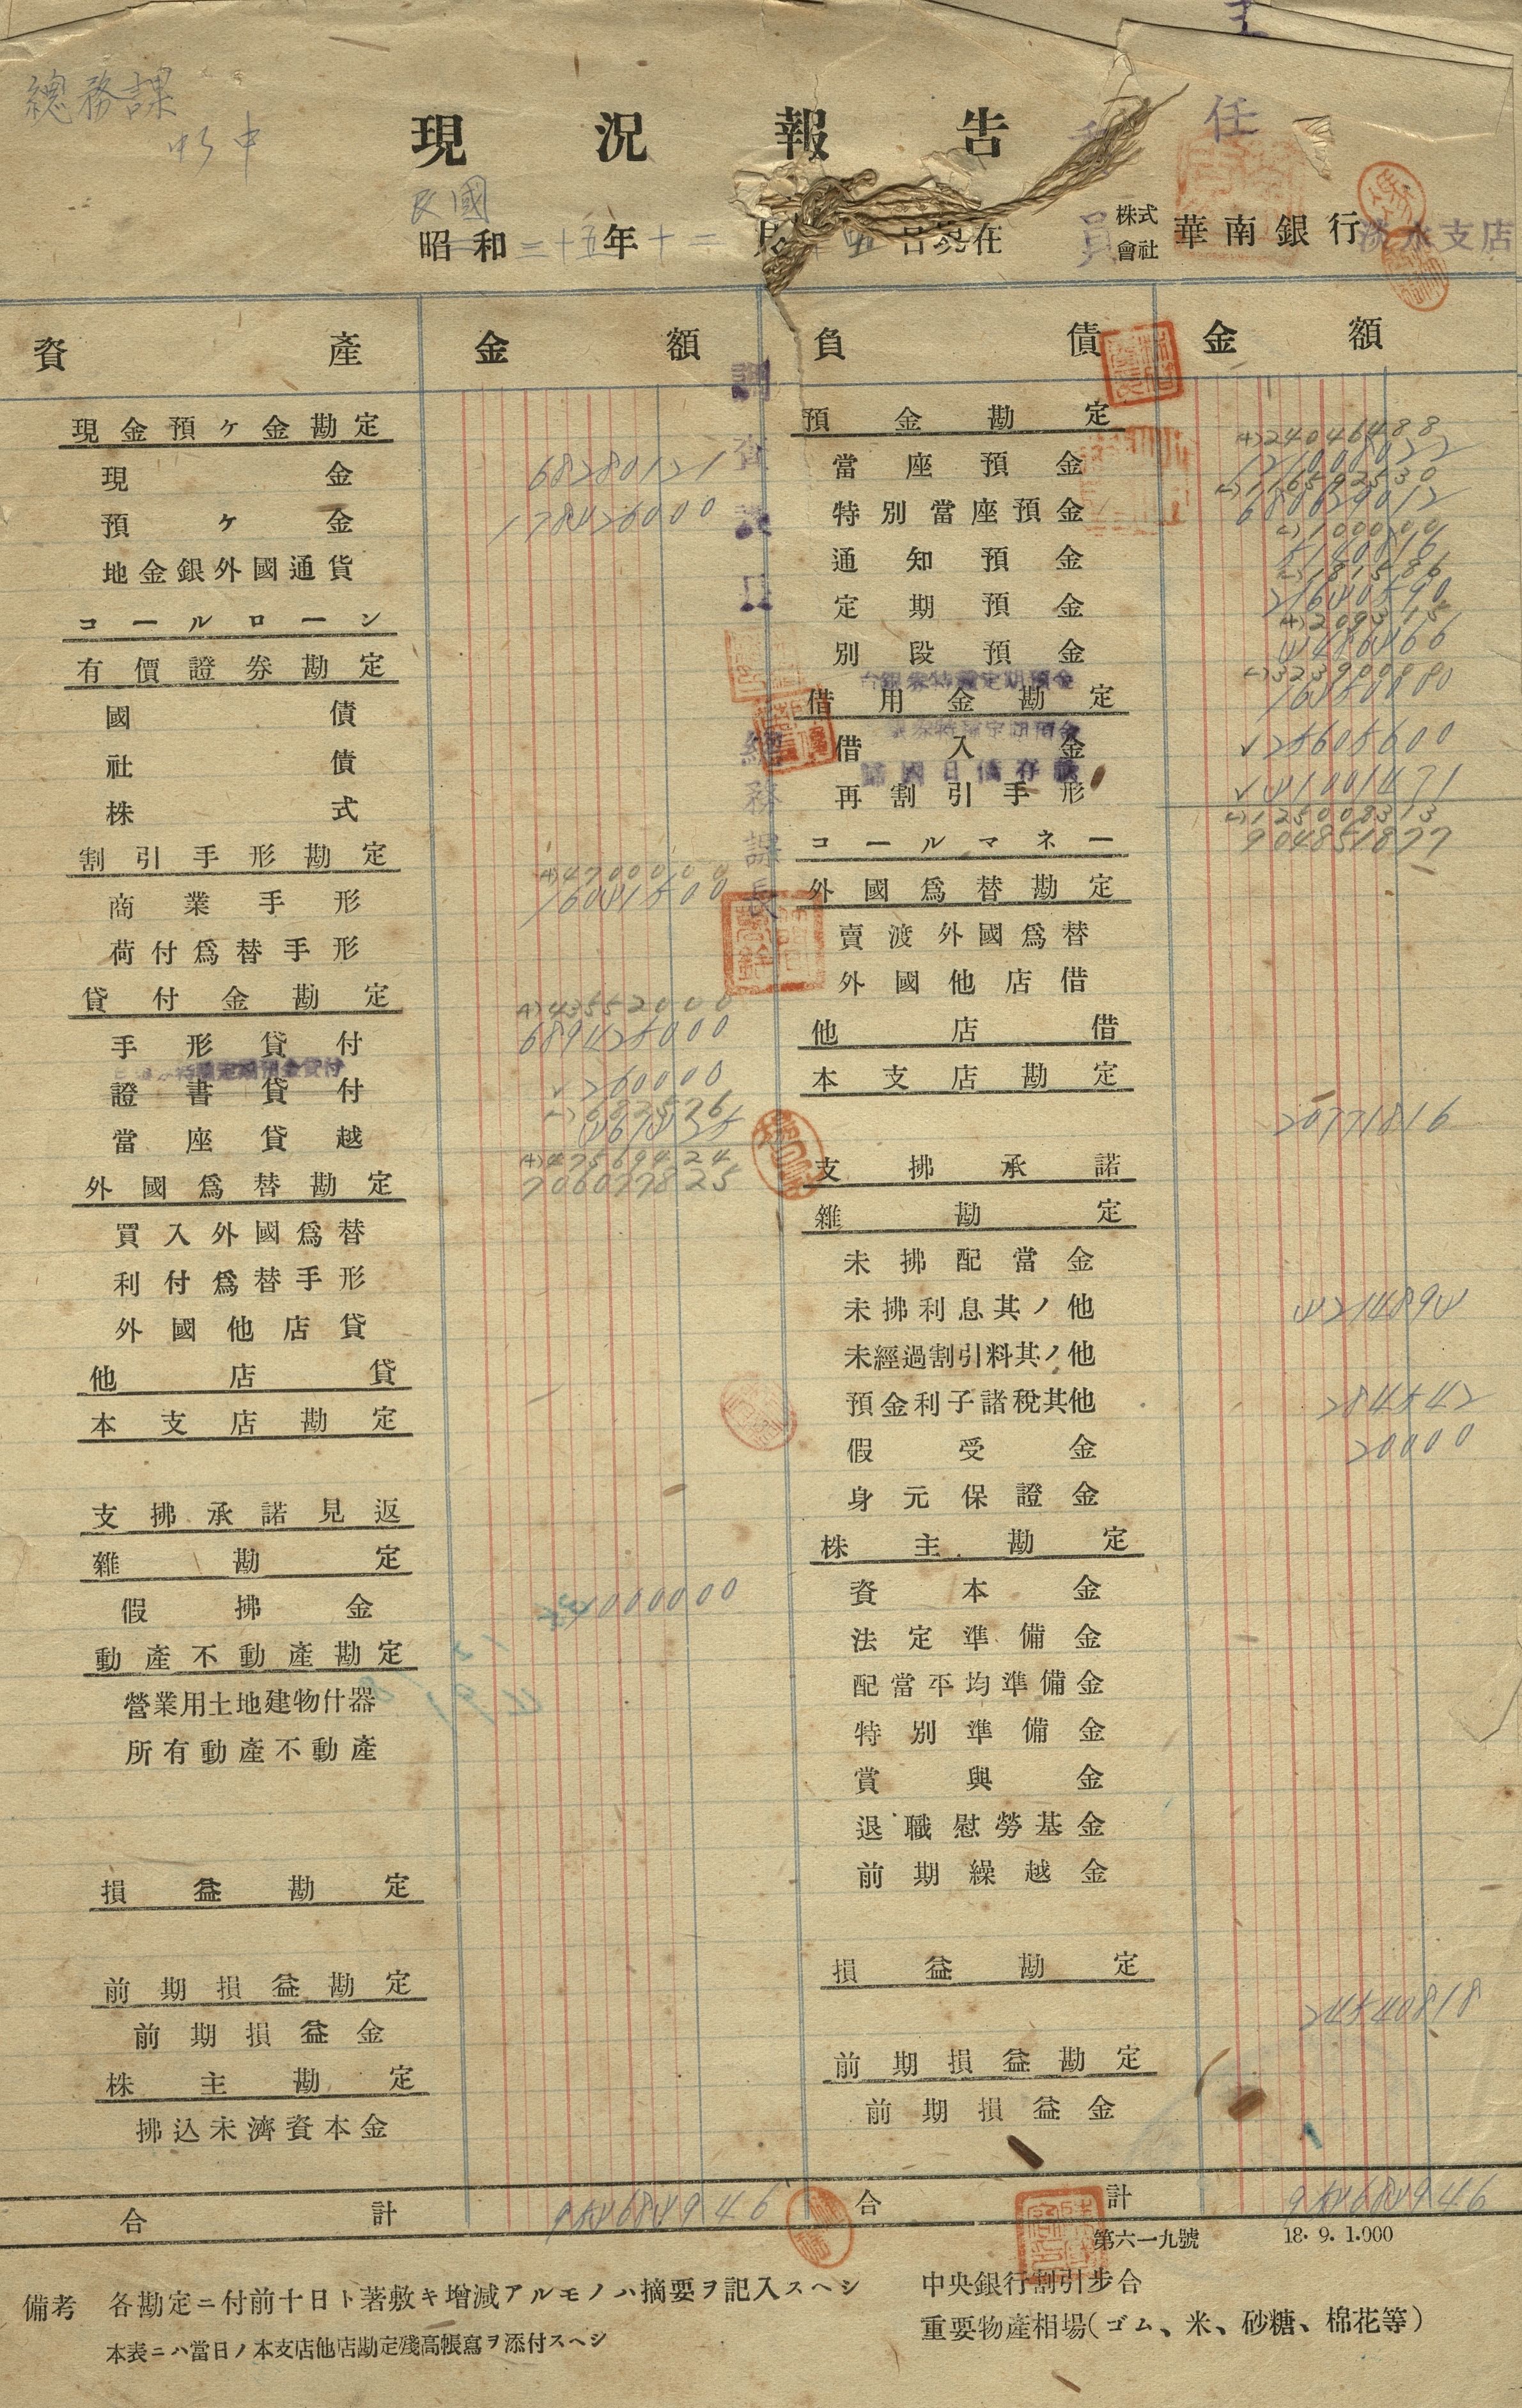 總務課
現況報告
任
民國
昭和三十五年十二月 五日現在
員
株式會社 華南銀行 淡水支店
資產 金額 負債 金額
現金預ケ金勘定
現金 68280121
預ケ金 178426000
地金銀外國通貨
コールローン
有價證券勘定
國債
社債
株式
割引手形勘定
(+)4700000
商業手形 16041500
荷付爲替手形
貸付金勘定
(+)43552000
手形貸付 689425000
特種定期預金貸付
證書貸付 260000
當座貸越
(+)47569424
706077825
外國爲替勘定
買入外國爲替
利付爲替手形
外國他店貸
他店貸
本支店勘定
支拂承諾見返
雜勘定
假拂金
動產不動產勘定
營業用土地建物什器
所有動產不動產
損益勘定
前期損益勘定
前期損益金
株主勘定
拂込未濟資本金
合計 954684946
調查課
總務課長
預金勘定
(+)24046488
當座預金 121008022
(-)116592530
特別當座預金 680629012
(-)100000
通知預金 5140816
(-)181586
定期預金 21640590
(+)209315
別段預金 4486466
台銀券特種定期預金
(-)32390080
借用金勘定
特種定期預金
借入金 25605600
再割引手形 41001471
(-)125008313
904851877
コールマネー
外國爲替勘定
賣渡外國爲替
外國他店借
他店借
本支店勘定
20771816
支拂承諾
雜勘定
未拂配當金
未拂利息其ノ他 4214894
未經過割引料其ノ他
預金利子諸稅其他 284542
假受金 20000
身元保證金
株主勘定
資本金
法定準備金
配當平均準備金
特別準備金
賞與金
退職慰勞基金
前期繰越金
損益勘定
24540818
前期損益勘定
前期損益金
合計 954684946
第六一九號 18.9.1.000
備考 各勘定ニ付前十日ト著敷キ增減アルモノハ摘要ヲ記入スヘシ
本表ニハ當日ノ本支店他店勘定殘高帳寫ヲ添付スヘシ
中央銀行割引步合
重要物產相場（ゴム、米、砂糖、棉花等）